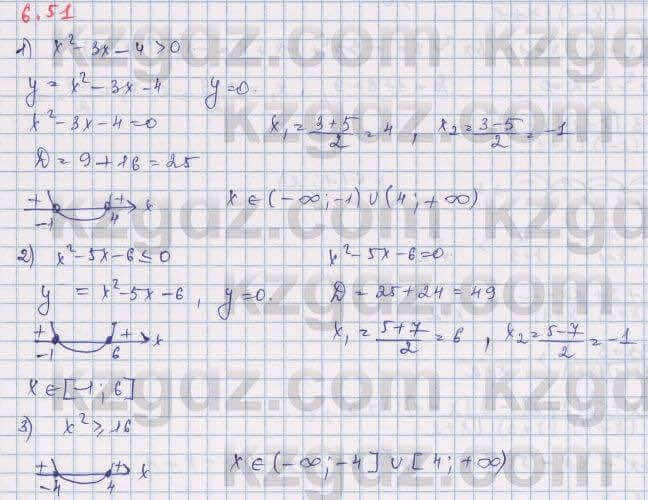 6.51
1) x² - 3x - 4 > 0
y = x² - 3x - 4   y = 0.
x² - 3x - 4 = 0   x₁ = (3+5)/2 = 4 , x₂ = (3-5)/2 = -1
D = 9 + 16 = 25
+ -1 4 + x   x ∈ (-∞; -1) ∪ (4; +∞)
2) x² - 5x - 6 ≤ 0   x² - 5x - 6 = 0.
y = x² - 5x - 6 , y = 0.   D = 25 + 24 = 49
+ -1 6 + x   x₁ = (5+7)/2 = 6 , x₂ = (5-7)/2 = -1
x ∈ [-1; 6]
3) x² ≥ 16
+ -4 4 + x   x ∈ (-∞; -4] ∪ [4; +∞)
kzgdz.com
kzgdz.com
kzgdz.com
kzgdz.com
kzgdz.com
kzgdz.com